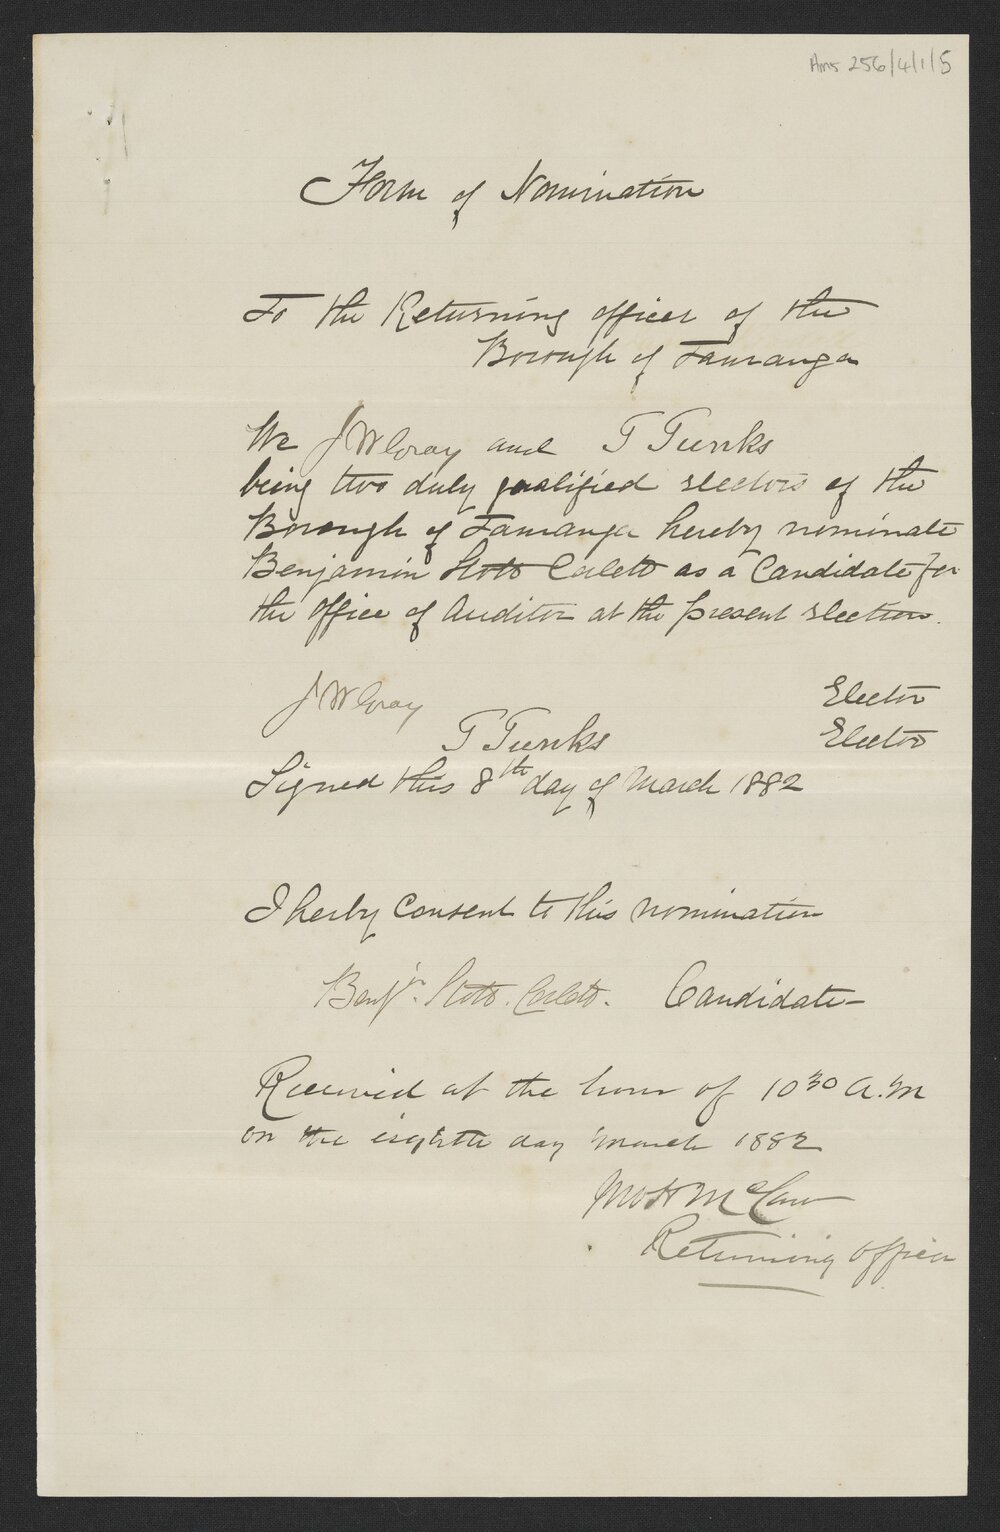 Ams 256/4/1/5
Form of Nomination
To the Returning officer of the
Borough of Tauranga
We J W Gray and T Tunks
being two duly qualified electors of the
Borough of Tauranga hereby nominate
Benjamin Stott Corlett as a Candidate for
the office of Auditor at the present election.
J W Gray Elector
T Tunks Elector
Signed this 8th day of March 1882
I herby consent to this nomination
Benjn. Stott. Corlett. Candidate
Received at the hour of 10 30 a.m
on the eighth day march 1882
McCaw
Returning officer